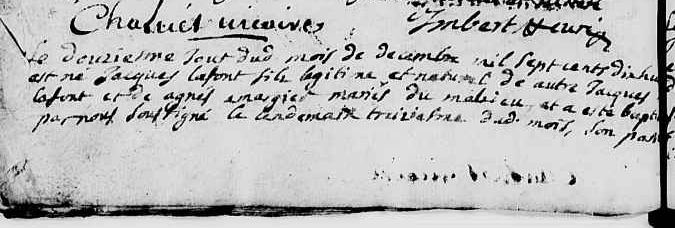 Chaluet vicaire Imbert
Le douziesme Jour dud mois de decembre mil sept cents dix huit
est né Jacques lafont fils legitime et naturel de autre Jacques
lafont et de agnés mariés du malzieu et a esté bapti
par nous soussigné le lendemain treiziesme dud mois, son par